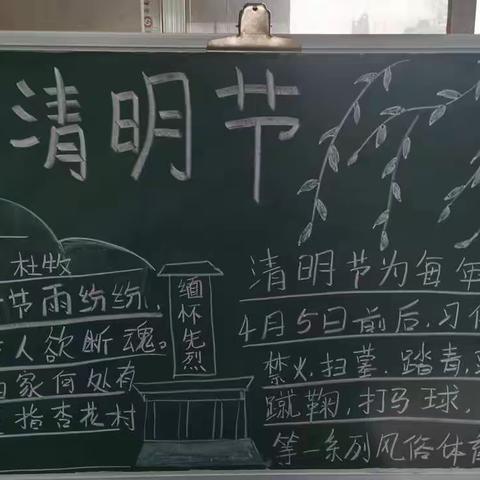 清明节
杜牧
节雨纷纷,
人欲断魂。
家何处有
指杏花村
缅怀先烈
清明节为每年
4月5日前后,习
禁火,扫墓,踏青,
蹴鞠,打马球,
等一系列风俗体育